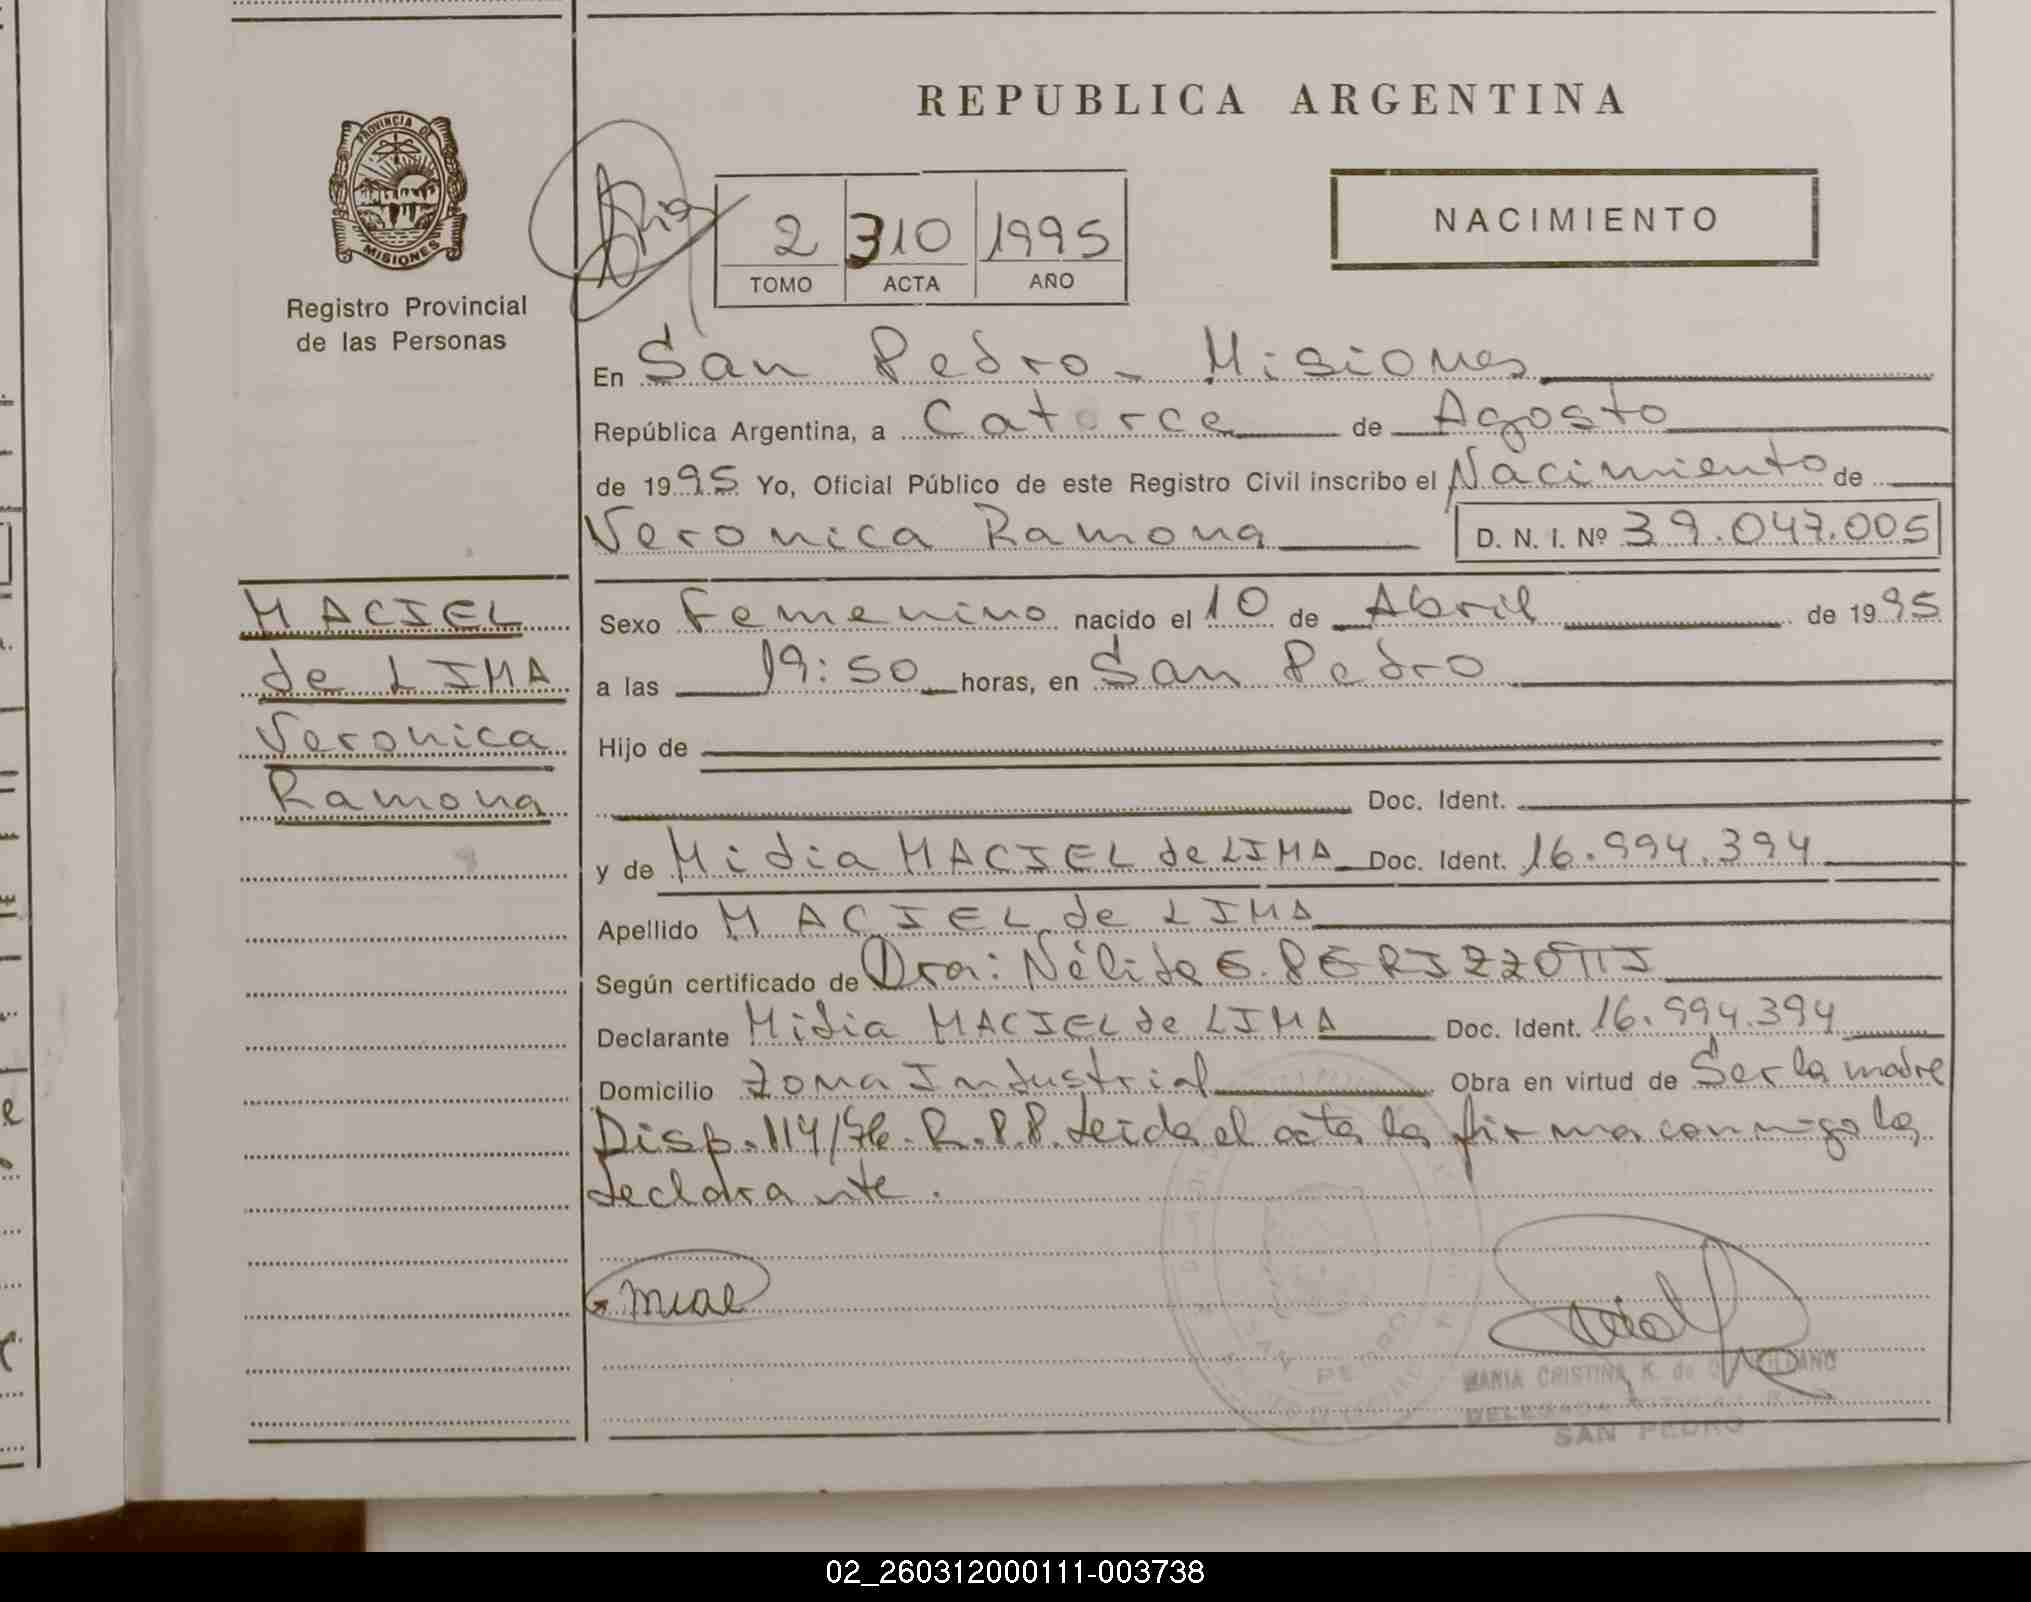 REPUBLICA ARGENTINA
PROVINCIA DE
MISIONES
Registro Provincial
de las Personas
2 310 1995
TOMO ACTA AÑO
NACIMIENTO
En San Pedro - Misiones
República Argentina, a Catorce de Agosto
de 1995 Yo, Oficial Público de este Registro Civil inscribo el Nacimiento de
Veronica Ramona D. N. I. Nº 39.047.005
MACIEL
de LIMA
Veronica
Ramona
Sexo Femenino nacido el 10 de Abril de 1995
a las 19:50 horas, en San Pedro
Hijo de
Doc. Ident.
y de Midia MACIEL de LIMA Doc. Ident. 16.994.394
Apellido MACIEL de LIMA
Según certificado de Dra: Nélida E. PERIZZOTTI
Declarante Midia MACIEL de LIMA Doc. Ident. 16.994.394
Domicilio Zona Industrial Obra en virtud de Ser la madre
Disp. 114/ R.P.P. Leida el acta la firma conmigo la
declarante.
SAN PEDRO
MARIA CRISTINA K. de
DELEGADA
SAN PEDRO
02_260312000111-003738